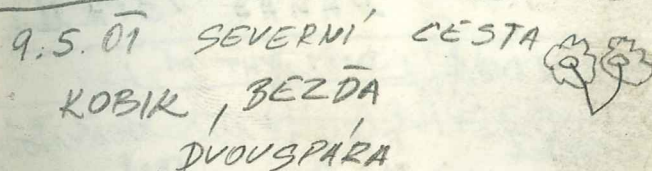 9.5.01 SEVERNÍ CESTA
KOBIK, BEZĎA
DVOUSPÁRA